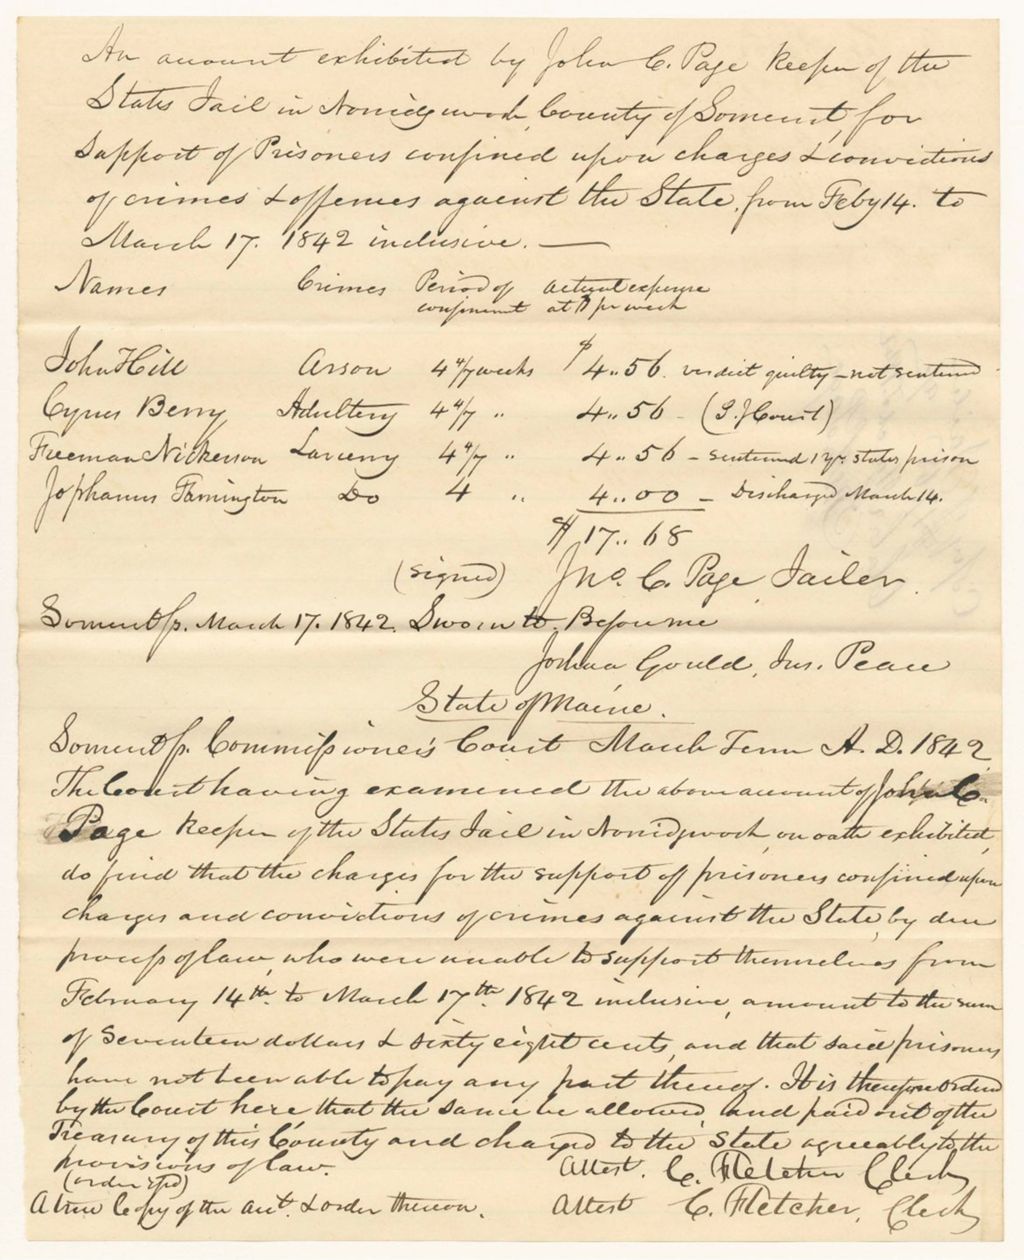 An account exhibited by John C. Page keeper of the
States Jail in Norridgewock, County of Somerset, for
support of Prisoners confined upon charges & convictions
of crimes & offences against the State, from Feby 14. to
March 17. 1842 inclusive. —
Names Crimes Period of confinement actual expense at $1 pr week
John Hill Arson 4 4/7 weeks $ 4..56. verdict guilty – not sentenced
Cyrus Berry Adultery 4 4/7 " 4..56 – (S. J. Court)
Freeman Nickerson Larceny 4 4/7 " 4..56 – sentenced 1 yr. states prison
Jophanus Farrington Do 4 " 4..00 – Discharged March 14.
$ 17..68
(signed) Jno. C. Page, Jailer.
Somerset ss. March 17. 1842. Sworn to. Before me
Joshua Gould, Jus. Peace
State of Maine.
Somerset ss. Commissioner's Court March Term A. D. 1842.
The Court having examined the above account of John C.
Page keeper of the States Jail in Norridgwock, on oath exhibited,
do find that the charges for the support of prisoners confined upon
charges and convictions of crimes against the State, by due
process of law, who were unable to support themselves from
February 14th to March 17th 1842 inclusive, amount to the sum
of Seventeen dollars & sixty eight cents, and that said prisoners
have not been able to pay any part thereof. It is therefore ordered
by the Court here that the same be allowed, and paid out of the
Treasury of this County and charged to the State agreeably to the
provisions of law. Attest. C. Fletcher Clerk
A true Copy of the act. & order thereon. Attest C. Fletcher, Clerk